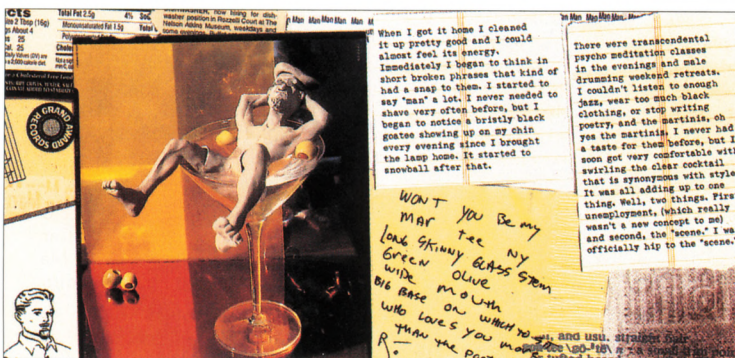 cts
Total Fat 2.5g 4%
Monounsaturated Fat 1.5g
ze 2 Tbsp (16g)
gs About 4
s 25
Cal. 25
Daily Values (DV) are
a 2,000 calorie diet.
now hiring for dish-
washer position in Rozzelli Court at The
Nelson Atkins Museum, weekdays and
some evenings.
Man Man Man Man Man
GRAND AWARD RECORDS
When I got it home I cleaned
it up pretty good and I could
almost feel its energy.
Immediately I began to think in
short broken phrases that kind of
had a snap to them. I started to
say "man" a lot. I never needed to
shave very often before, but I
began to notice a bristly black
goatee showing up on my chin
every evening since I brought
the lamp home. It started to
snowball after that.
There were transcendental
psycho meditation classes
in the evenings and male
drumming weekend retreats.
I couldn't listen to enough
jazz, wear too much black
clothing, or stop writing
poetry, and the martinis, oh
yes the martinis. I never had
a taste for them before, but I
soon got very comfortable with
swirling the clear cocktail
that is synonymous with style
It was all adding up to one
thing. Well, two things. First
unemployment, (which really
wasn't a new concept to me)
and second, the "scene." I was
officially hip to the "scene."
WON'T YOU BE MY
MAR TEE NY
LONG SKINNY GLASS STEM
GREEN OLIVE
WIDE MOUTH
BIG BASE ON WHICH TO
WHO LOVES YOU MORE
THAN THE POET
R-
and usu. straight hair